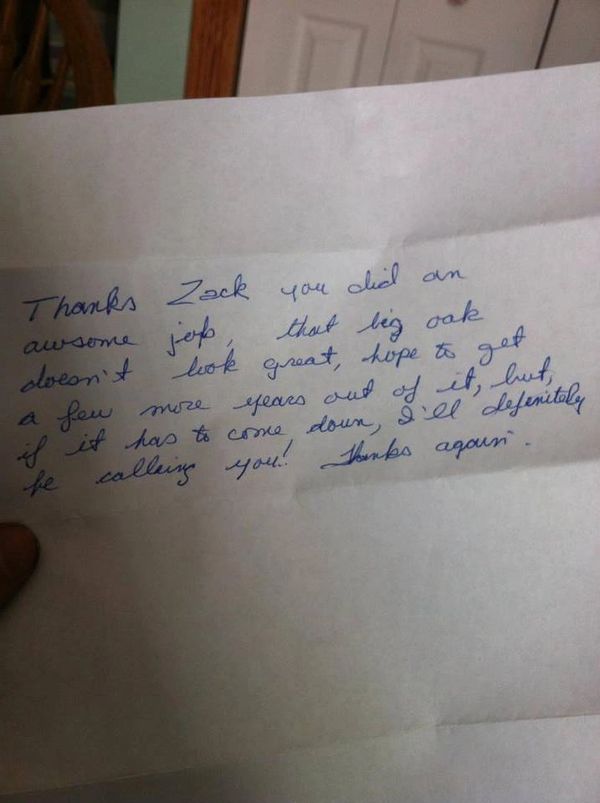 Thanks Zack you did an
awsome job, that big oak
doesn't look great, hope to get
a few more years out of it, but,
if it has to come down, I'll definitely
be calling you! Thanks again.